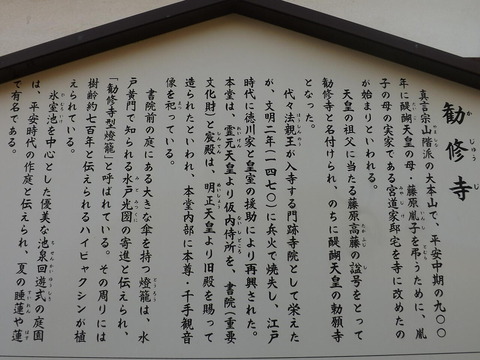 勧修寺
かじゅうじ
真言宗山階派の大本山で、平安中期の九〇〇
年に醍醐天皇の母・藤原胤子を弔うために、胤
子の母の実家である宮道家邸宅を寺に改めたの
が始まりといわれる。
天皇の祖父に当たる藤原高藤の諡号をとって
勧修寺と名付けられ、のちに醍醐天皇の勅願寺
となった。
代々法親王が入寺する門跡寺院として栄えた
が、文明二年（一四七〇）に兵火で焼失し、江戸
時代に徳川家と皇室の援助により再興された。
本堂は、霊元天皇より仮内侍所を、書院（重要
文化財）と宸殿は、明正天皇より旧殿を賜って
造られたといわれ、本堂内部に本尊・千手観音
像を祀っている。
書院前の庭にある大きな傘を持つ燈籠は、水
戸黄門で知られる水戸光圀の寄進と伝えられ、
「勧修寺型燈籠」と呼ばれている。その周りには
樹齢約七百年と伝えられるハイビャクシンが植
えられている。
氷室池を中心とした優美な池泉回遊式の庭園
は、平安時代の作庭と伝えられ、夏の睡蓮や蓮
で有名である。